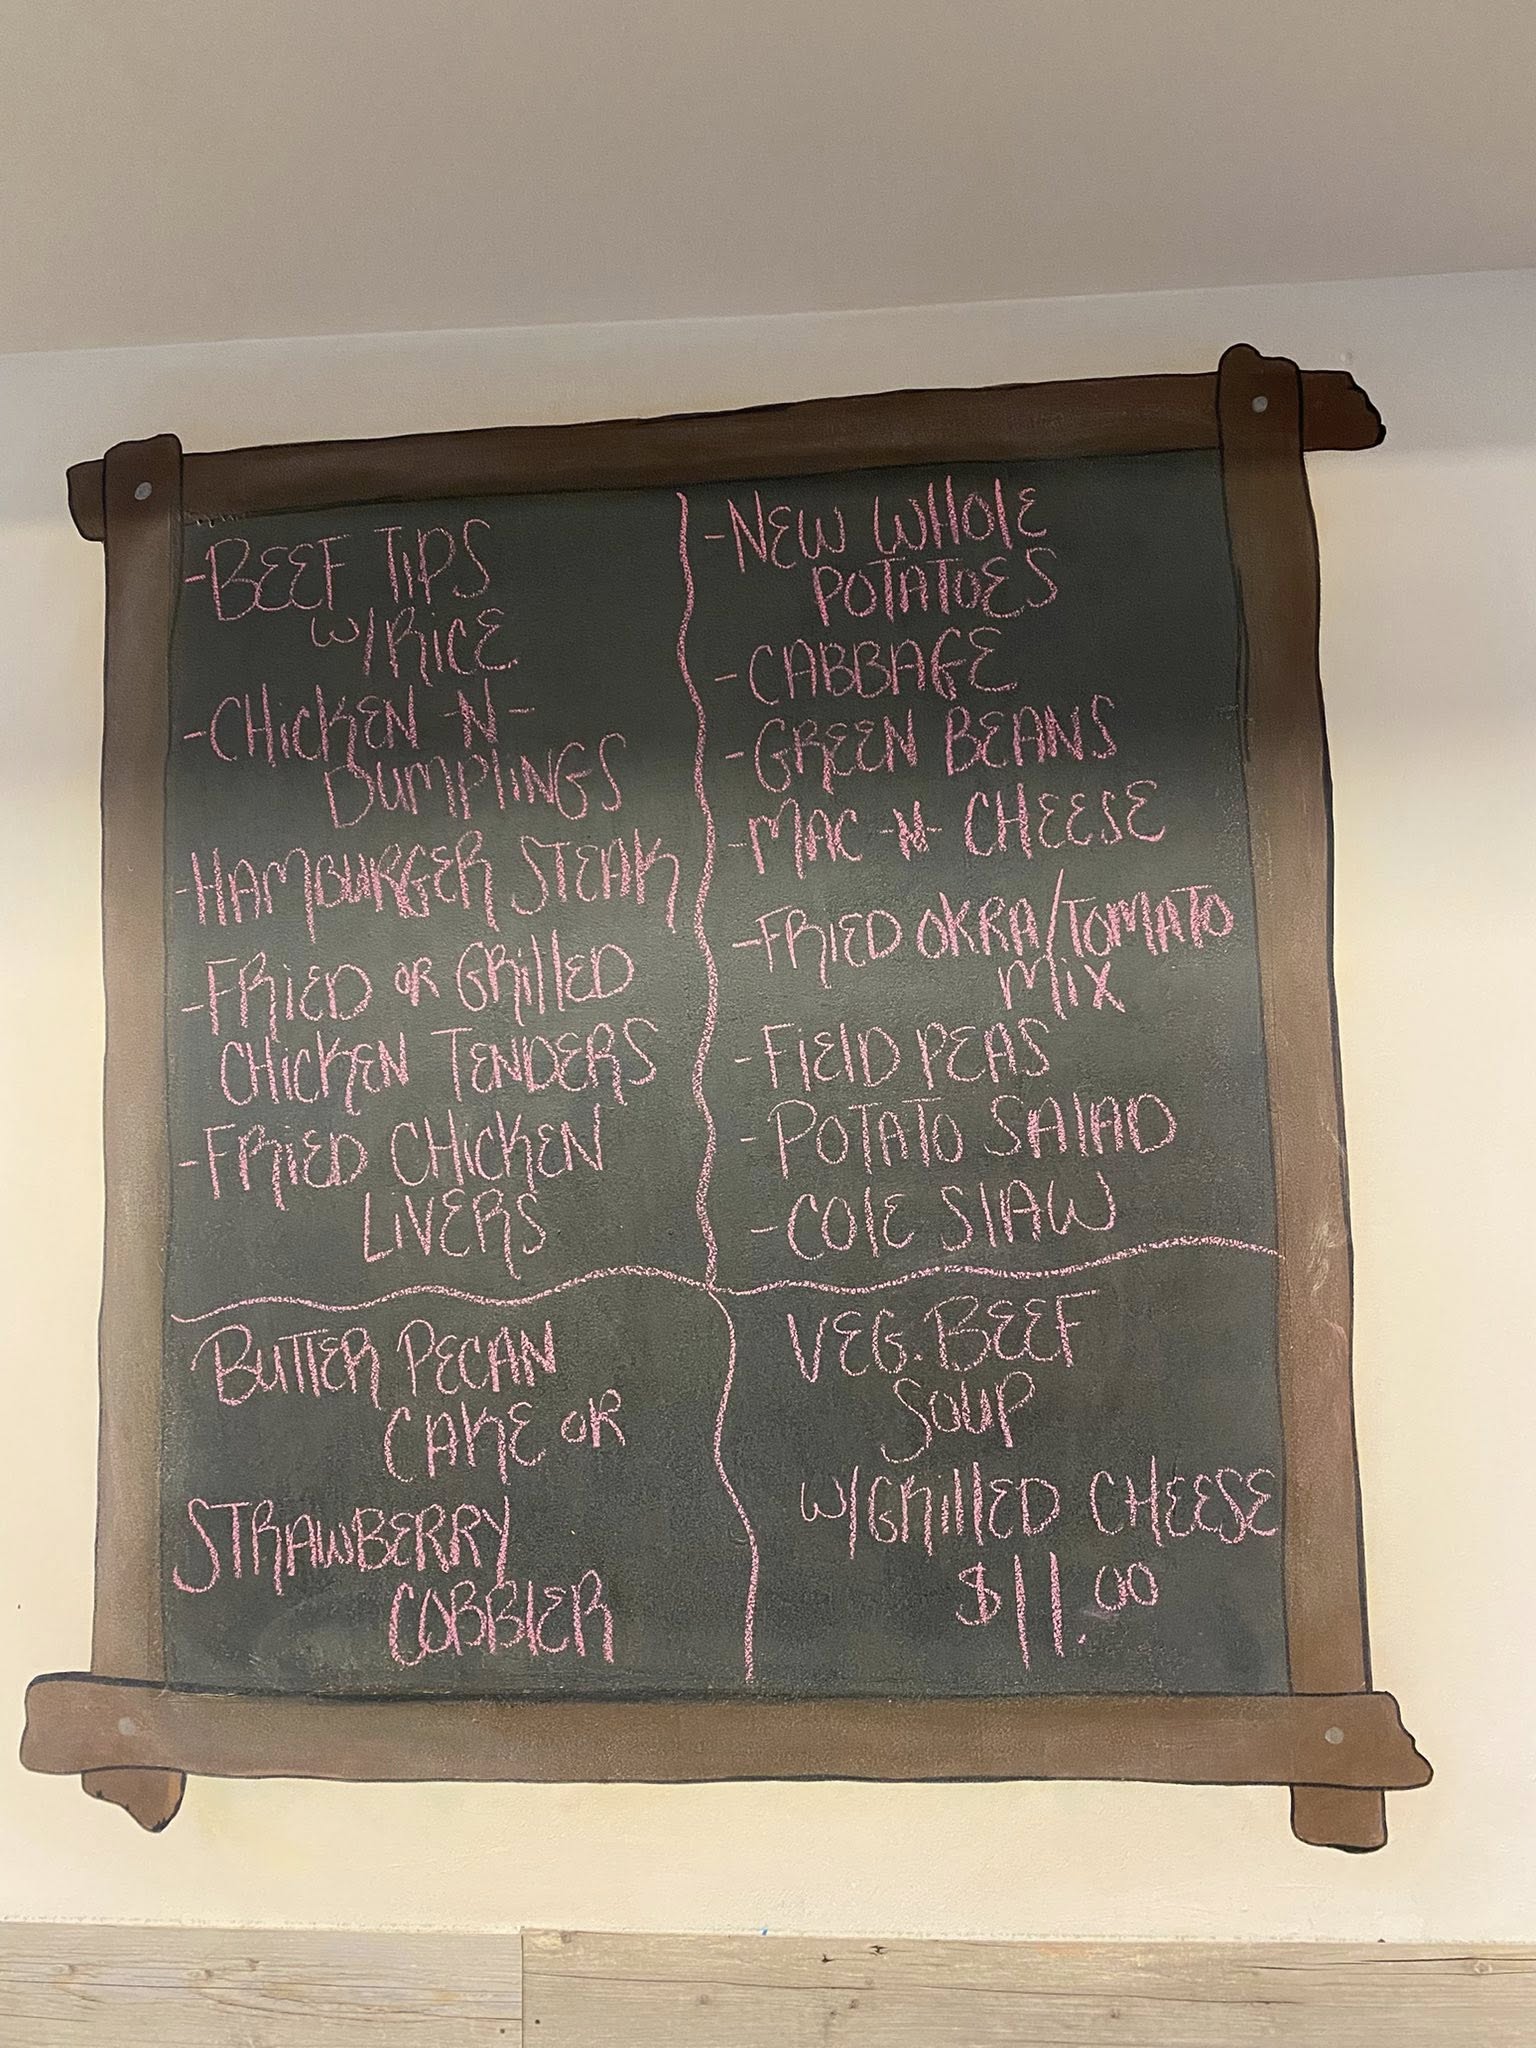 -BEEF TIPS
W/RICE
-CHICKEN -N-
DUMPLINGS
-HAMBURGER STEAK
-FRIED OR GRILLED
CHICKEN TENDERS
-FRIED CHICKEN
LIVERS
-NEW WHOLE
POTATOES
-CABBAGE
-GREEN BEANS
-MAC -N- CHEESE
-FRIED OKRA/TOMATO
MIX
-FIELD PEAS
-POTATO SALAD
-COLE SLAW
BUTTER PECAN
CAKE OR
STRAWBERRY
COBBLER
VEG. BEEF
SOUP
W/GRILLED CHEESE
$11.00